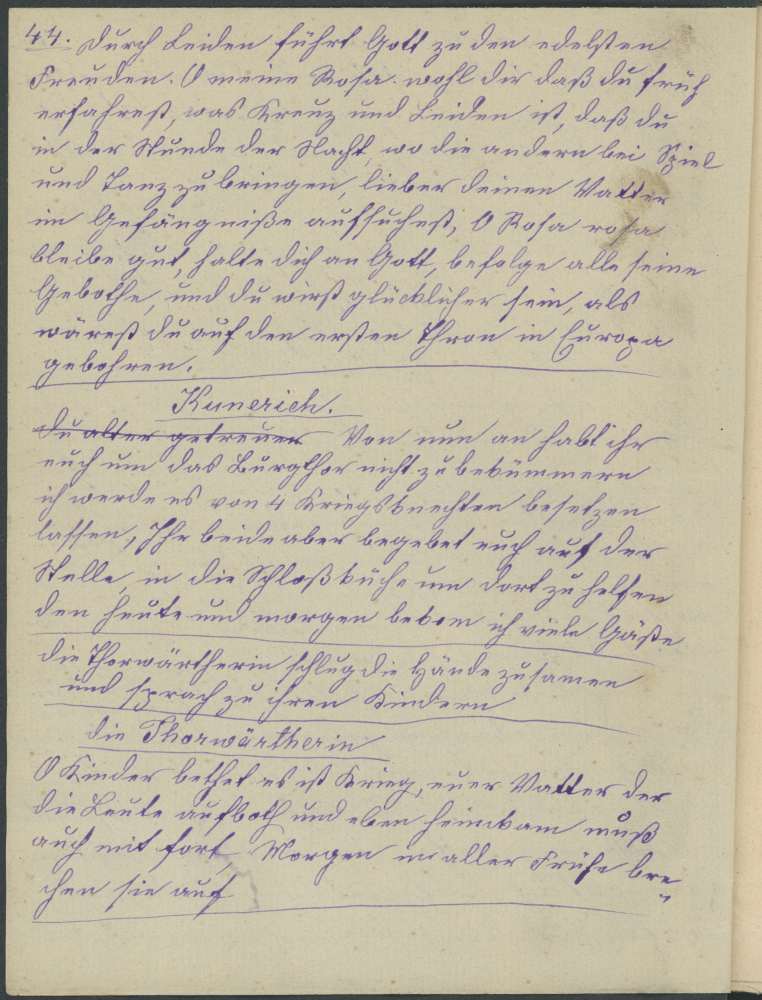 44. Durch Leiden führt Gott zu den edelsten
Freuden. O meine Rosa. wohl dir daß du früh
erfahrest, was Kreuz und Leiden ist, daß du
in der Stunde der Nacht, wo die andern bei Spiel
und Tanz zu bringen, lieber deinen Vatter
im Gefängniße aufsuchest, O Rosa rosa
bleibe gut, halte dich an Gott, befolge alle seine
Gebothe, und du wirst glücklicher sein, als
wärest du auf den ersten Thron in Europa
gebohren.
Kunerich.
Du alter getreuer Von nun an habt ihr
euch um das Burgthor nicht zu bekümmern
ich werde es von 4 Kriegsknechten besetzen
lassen, Ihr beide aber begebet euch auf der
Stelle, in die Schloßküche um dort zu helfen
den heute und morgen bekom ich viele Gäste
die Thorwärtherin schlug die Hände zusamen
und sprach zu ihren Kindern
die Thorwärtherin
O Kinder bethet es ist Krieg, euer Vatter der
die Leute aufboth und eben heimkam muß
auch mit fort, Morgen in aller Frühe bre„
chen sie auf